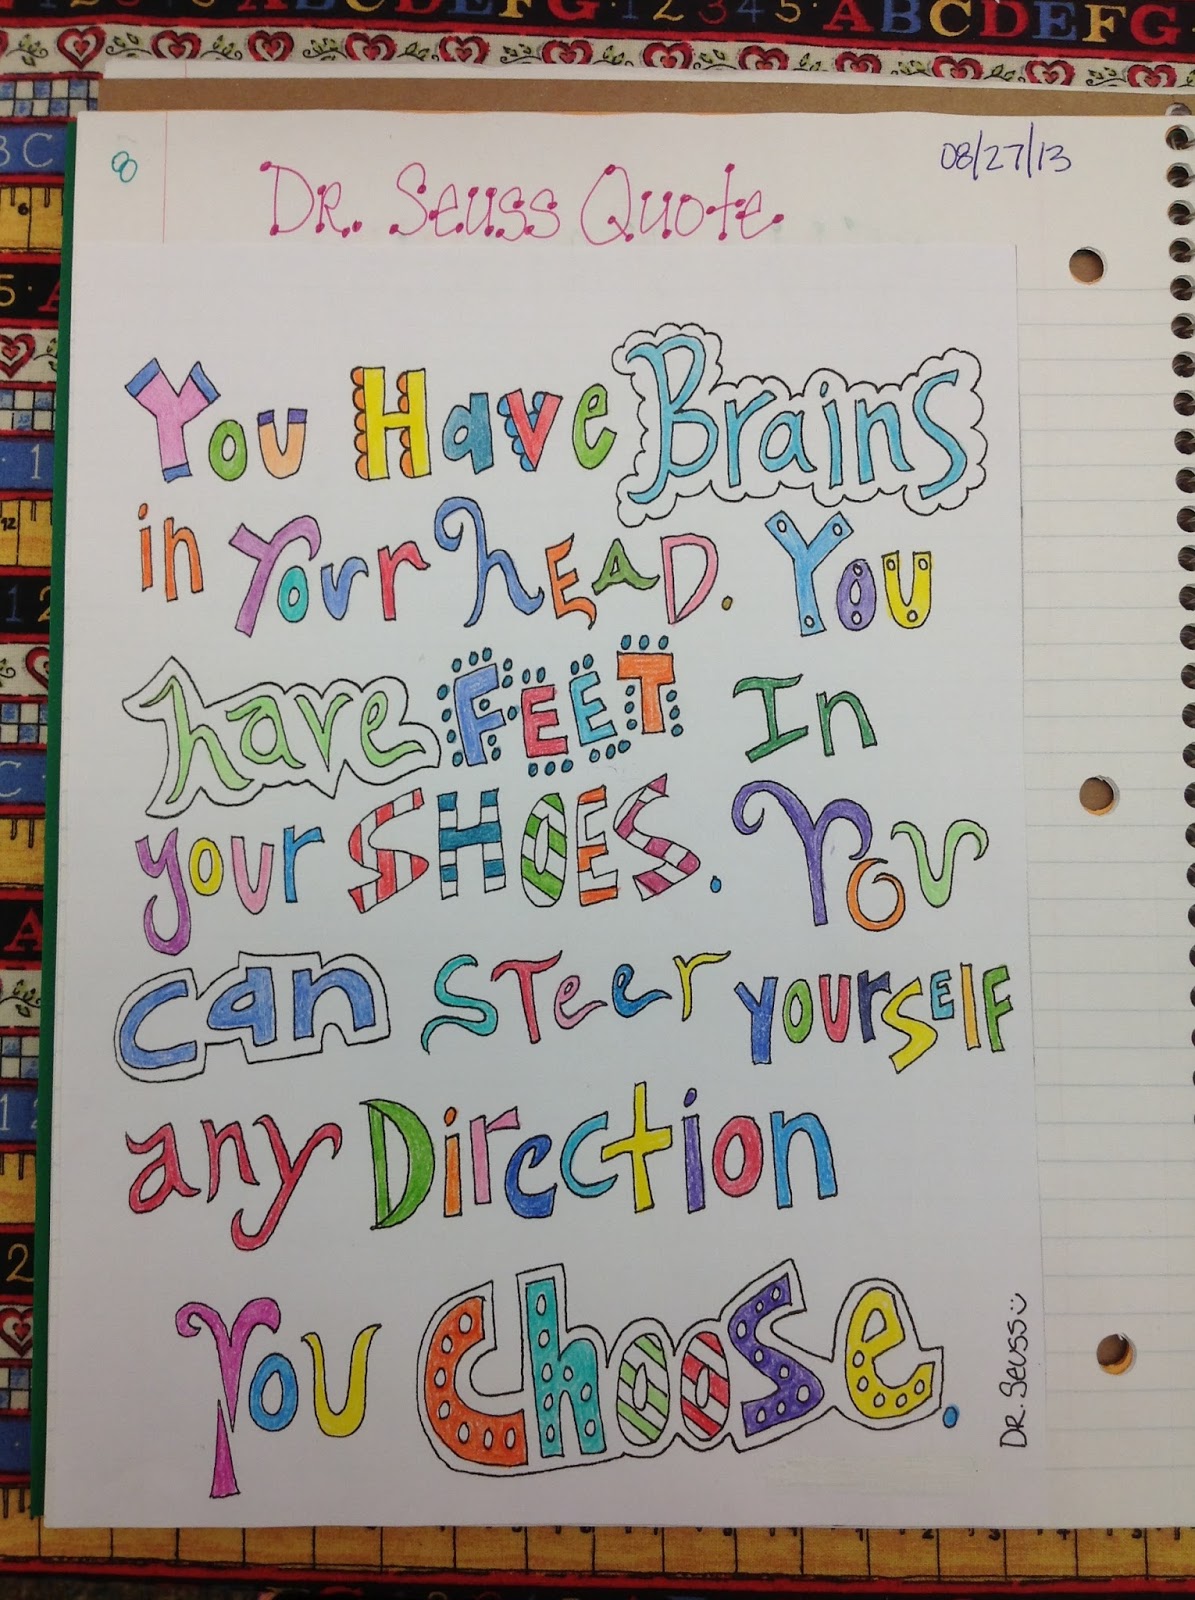 ABCDEFG·12345·ABCDEFG·
8
08/27/13
Dr. Seuss Quote.
You Have Brains
in Your HEAD. You
have FEET In
your SHOES. You
can STeer YourSElF
any Direction
You Choose.
DR. Seuss